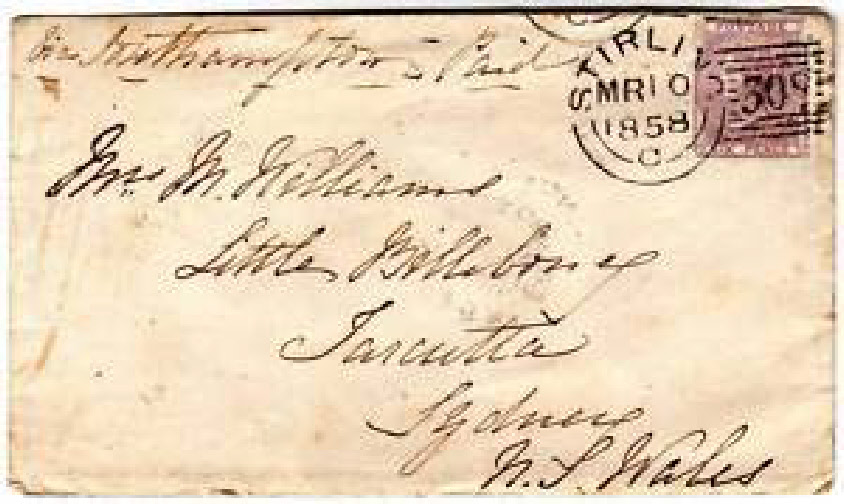 via Southampton - Paid
STIRLIN
MR 10
1858
C
Mrs M. Williams
Little Billebong
Tarcutta
Sydney
N. S. Wales